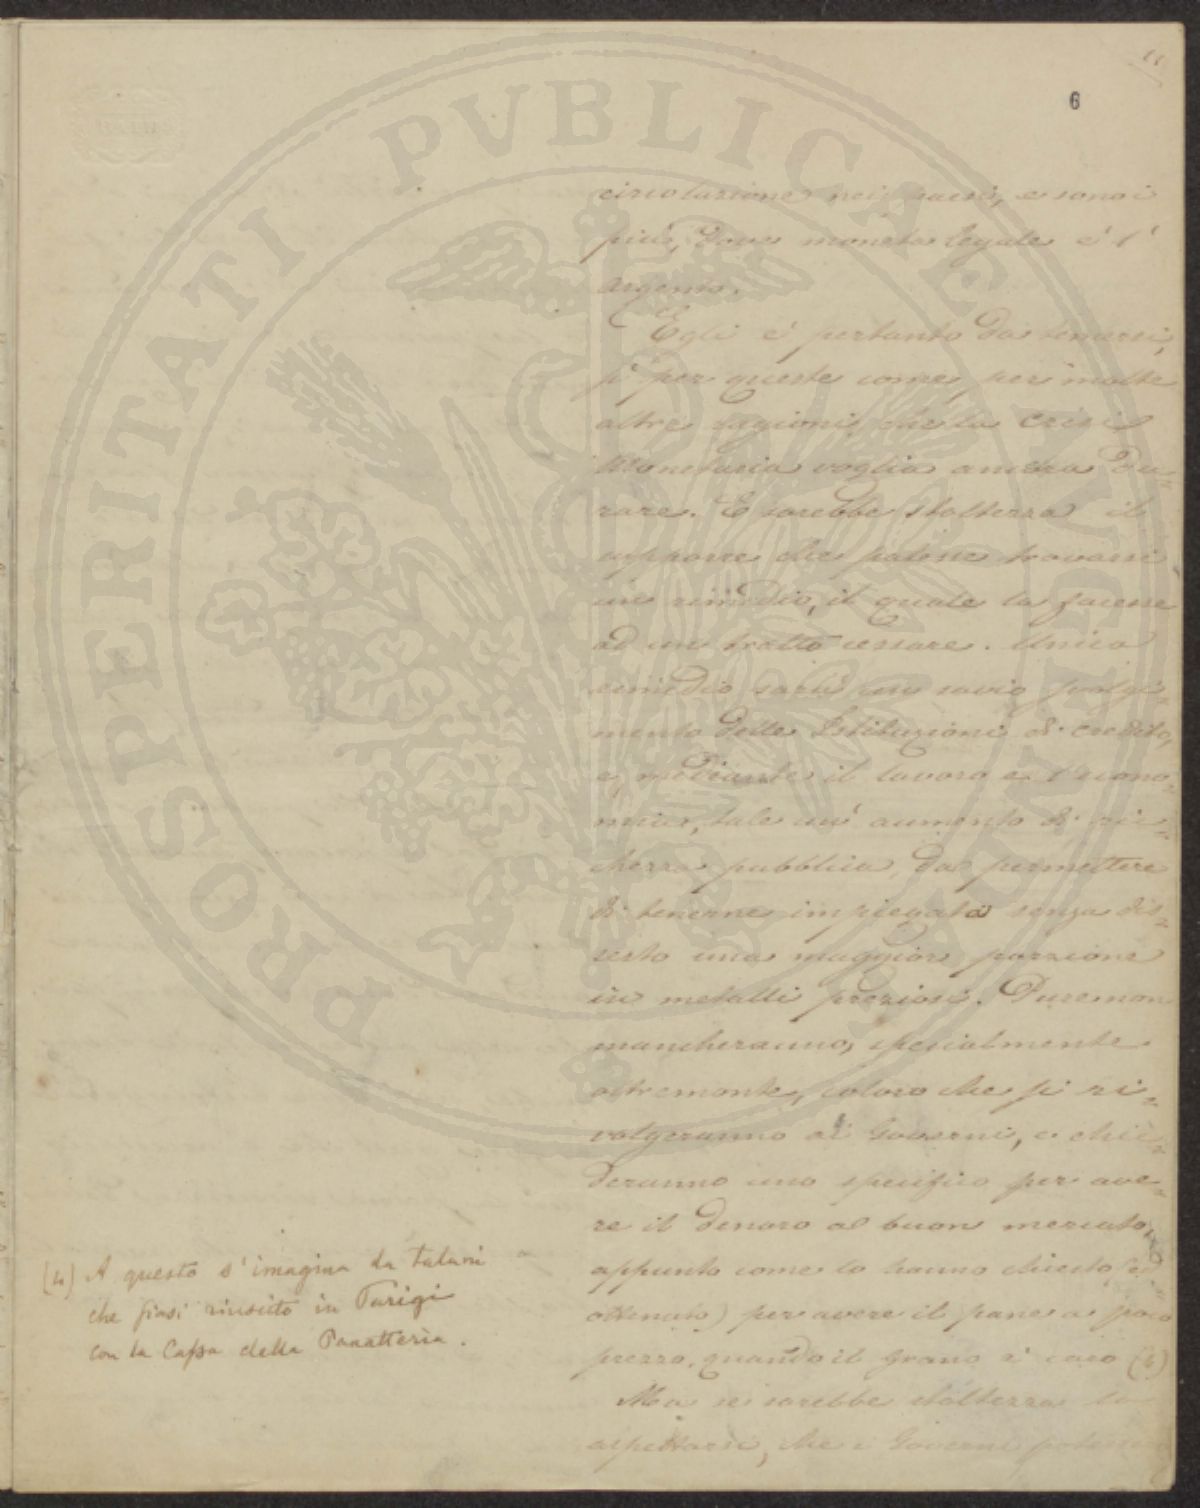 11
6
circolazione nei paesi, e sono i
più, dove moneta legale è l'
argento.
Egli è pertanto da temersi,
sì per queste come per molte
altre ragioni, che la crisi
Monetaria voglia ancora du=
rare. E sarebbe stoltezza il
supporre che potesse trovarsi
un rimedio, il quale la facesse
ad un tratto cessare. Unico
rimedio sarà un savio svolgi=
mento delle Istituzioni di credito,
e, mediante il lavoro e l'econo=
mia, tale un' aumento di ric=
chezza pubblica, da permettere
di tenerne impiegata senza dis=
sesto una maggiore porzione
in metalli preziosi. Pure non
mancheranno, specialmente
oltremonte, coloro che si ri=
volgeranno ai Governi, e chie=
deranno uno specifico per ave=
re il denaro al buon mercato,
appunto come lo hanno chiesto (ed
ottenuto) per avere il pane a poco
prezzo, quando il grano è caro (4)
Ma se sarebbe stoltezza lo
aspettarsi, che i Governi
(4) A questo s'imagina da taluni
che siasi riuscito in Parigi
con la Cassa della Panatteria.
PROSPERITATI PVBLICAE AVGENDAE